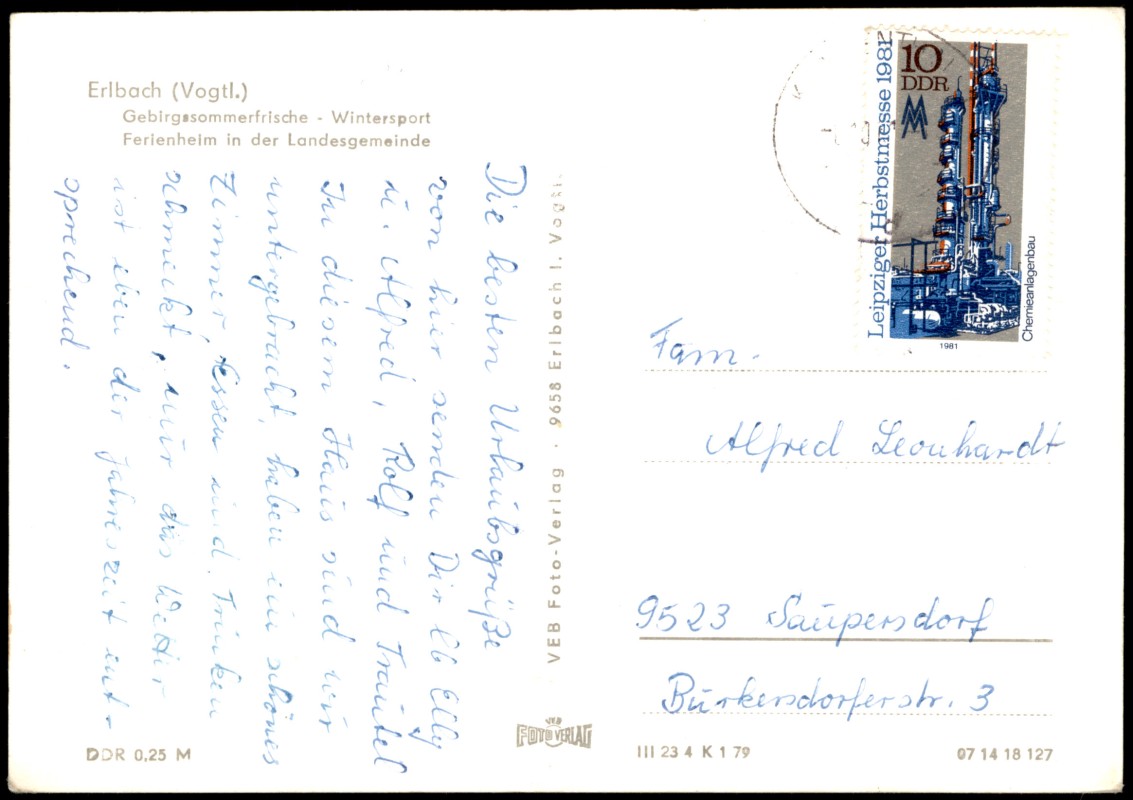 Erlbach (Vogtl.)
Gebirgssommerfrische - Wintersport
Ferienheim in der Landesgemeinde
Die besten Urlaubsgrüße
von hier senden Dir lb Elly
u. Alfred, Rolf und Trautel
In diesem Haus sind wir
untergebracht, haben ein schönes
Zimmer, Essen und Trinken
schmeckt, nur das Wetter
ist eben der Jahreszeit ent-
sprechend.
VEB Foto-Verlag · 9658 Erlbach i. Vogtl.
Leipziger Herbstmesse 1981
10
DDR
Chemieanlagenbau
1981
Fam.
Alfred Leonhardt
9523 Saupersdorf
Burkersdorferstr. 3
DDR 0,25 M
VEB
FOTO VERLAG
III 23 4 K 1 79
07 14 18 127